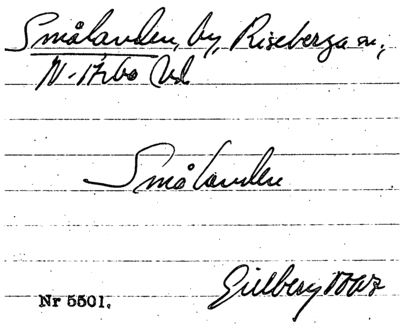 Smålanden, by, Riseberga sn,
N. Åsbo hd
Smålanden
Gillberg
Nr 5501.